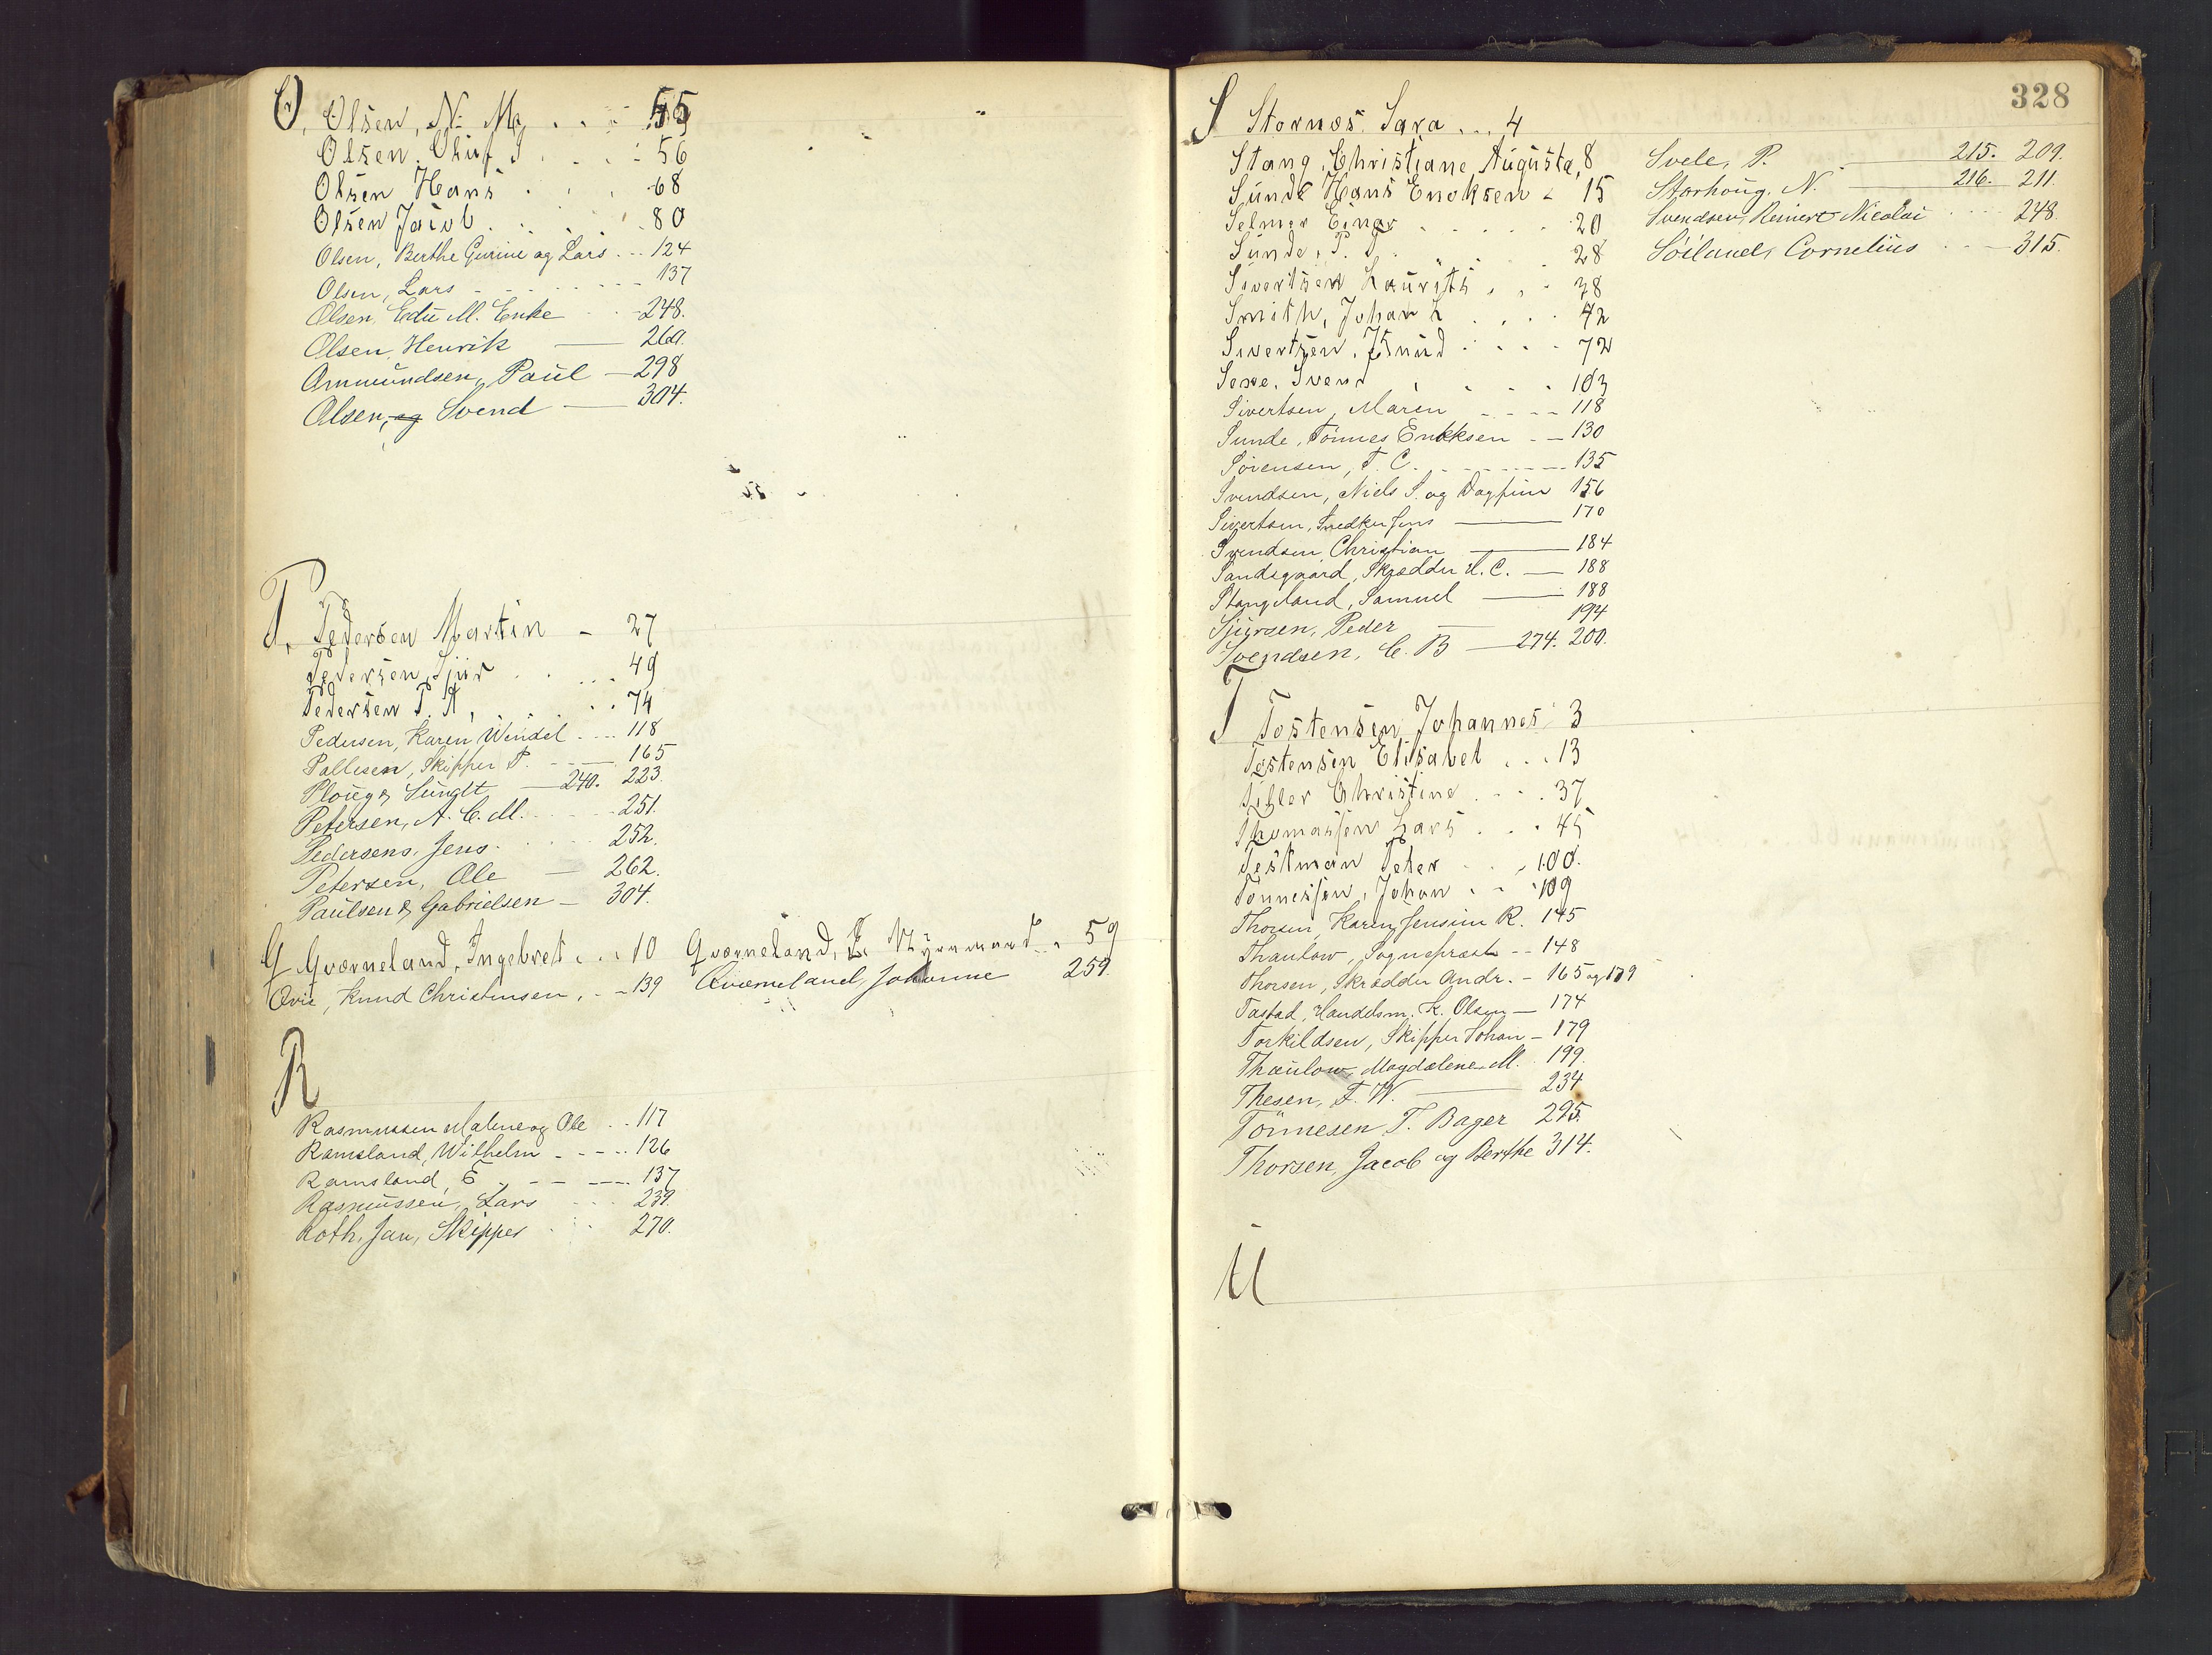 O, Olsen, N. M. . . 55
Olsen, Oluf J . . . 56
Olsen Hans . . . 68
Olsen Jacob . . . 80
Olsen, Berthe Gurine og Lars ... 124
Olsen, Lars - - - - - 137
Olsen, Edv M. Enke . . 248.
Olsen, Henrik — 260.
Ommundsen, Paul — 298
Olsen, og Svend — 304.
P. Pedersen Martin - 27
Pedersen, Sjur . . . 49
Pedersen P. A, . . . 74
Pedersen, Karen Windel . . . . 118
Pallesen, Skipper P. - — 165
Ploug & Sundt — 240. 223.
Petersen, A. C. M. . . . 251.
Pedersens, Jens. . . . 252.
Petersen, Ole — 262.
Paulsen & Gabrielsen — 304.
Q Qværneland, Ingebret . . . 10 Qværneland, . 59
Qvie, Knud Christensen, . - 139 Qværneland, Johanne 259.
R
Rasmussen Malene og Ole . . 117
Ramsland, Wilhelm - - - . . 126
Ramsland, E - - — . . 137
Rasmussen, Lars . . . 239.
Roth, Jan, Skipper . . . 270.
328
S Stornæs Sara . . . 4
Stang, Christiane Augusta, 8 Svele, P. — 215. 209.
Sunde Hans Enoksen - 15 Storhoug, N. — 216. 211.
Selmer Einar . . . . . 20 Svendsen, Reinert Nicolai . . . . 248.
Sunde, P. T. . . . 28 Söiland, Cornelius . . — 315.
Sivertsen Laurits . . . 38
Smith, Johan L . . . . 42
Sivertsen, Knud . . . . 72
Sexe, Svend . . . . 103
Sivertsen, Maren - - - - 118
Sunde, Tönnes Enokksen - — 130
Sörensen, T. C. - - - - - 135
Svendsen, Niels S. og Dagfinn 156
Sivertsen, Snedker Jens — 170
Svendsen Christian — 184
Sandsgaard, Skrædder A. C. — 188
Stangeland, Samuel — 188
Sjursen, Peder — 194
Svendsen, C. B — 274. 200.
T Tostensen, Johannes 3
Tostensen Elisabet . . . 13
Tiller Christine . . . . 37
Thomassen Lars . . . 45
Testman Peter . . . 100.
Tönnessen, Johan . . 109
Thorsen, Karen Jensine R. 145
Thaulow, Sogneprest - - 148
Thorsen, Skrædder Andr. - 165 og 179
Tastad, Handelsm. K. Olsen — 174
Torkildsen, Skipper Johan — 179
Thaulow, Magdalene M. 199.
Thesen, F. W. — 234
Tönnesen, T. Bager 295.
Thorsen, Jacob og Berthe 314.
U